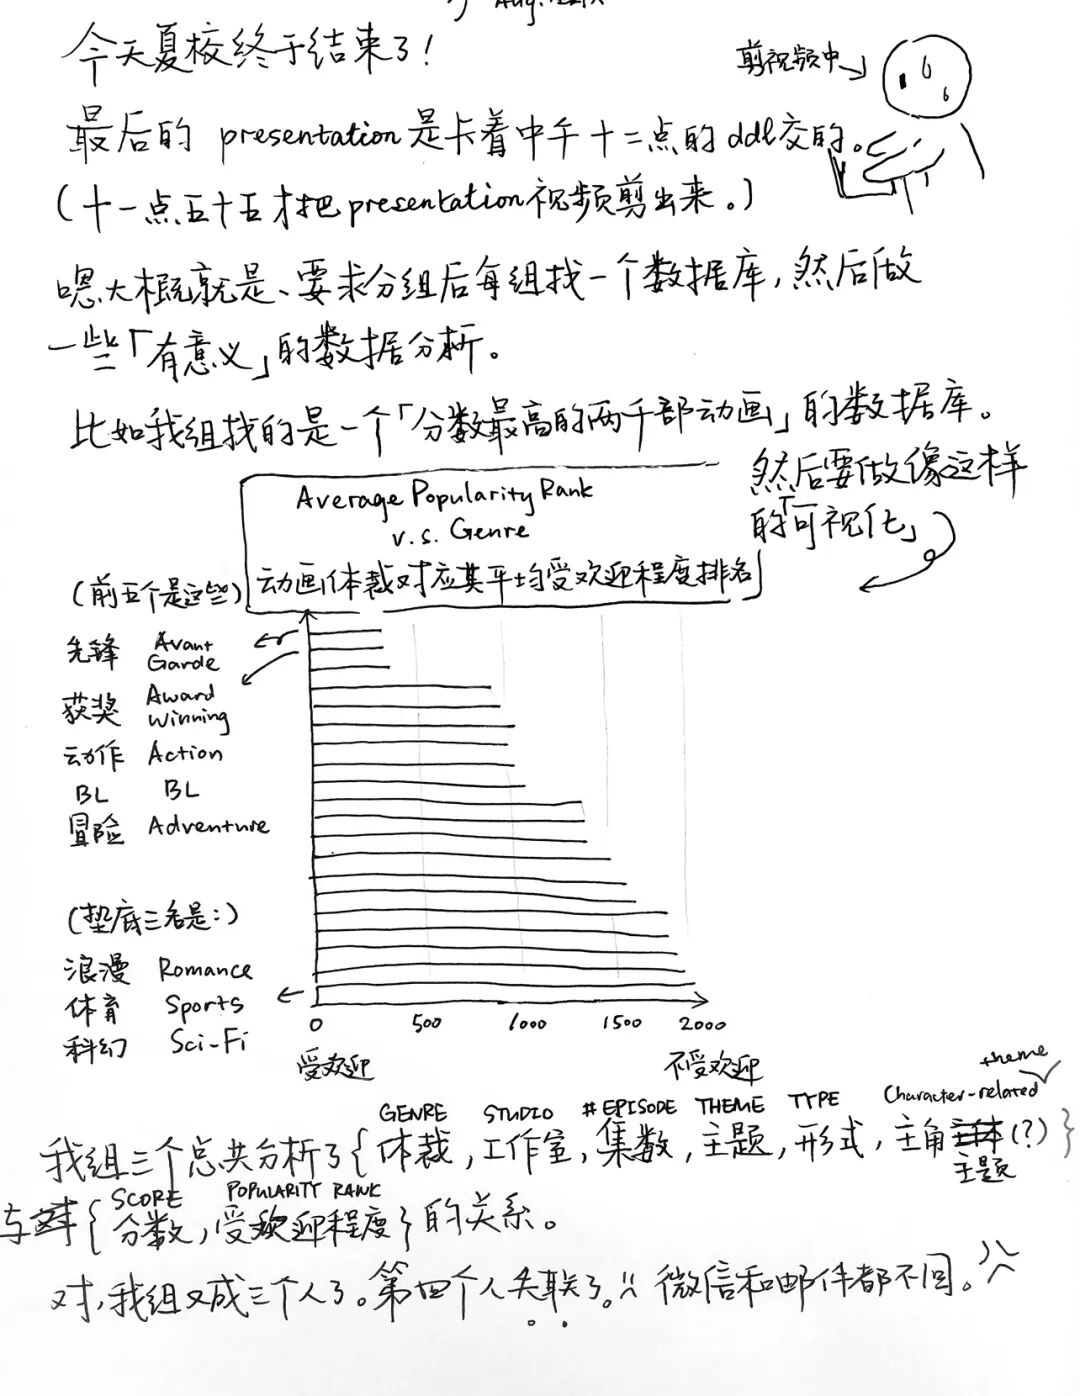 Aug.
今天夏校终于结束了!
剪视频中
最后的 presentation 是卡着中午十二点的 ddl 交的。
(十一点五十五才把presentation视频剪出来。)
嗯大概就是、要求分组后每组找一个数据库,然后做
一些「有意义」的数据分析。
比如我组找的是一个「分数最高的两千部动画」的数据库。
然后要做像这样
的「可视化」
Average Popularity Rank
v.s. Genre
动画体裁对应其平均受欢迎程度排名
(前五个是这些)
先锋 Avant Garde
获奖 Award Winning
动作 Action
BL BL
冒险 Adventure
(垫底三名是:)
浪漫 Romance
体育 Sports
科幻 Sci-Fi
0 500 1000 1500 2000
受欢迎 不受欢迎
theme
GENRE STUDIO # EPISODE THEME TYPE Character-related
我组三个总共分析了{体裁,工作室,集数,主题,形式,主角主体(?)}
主题
SCORE POPULARITY RANK
与{分数,受欢迎程度}的关系。
对,我组又成三个人了。第四个人失联了。微信和邮件都不回。